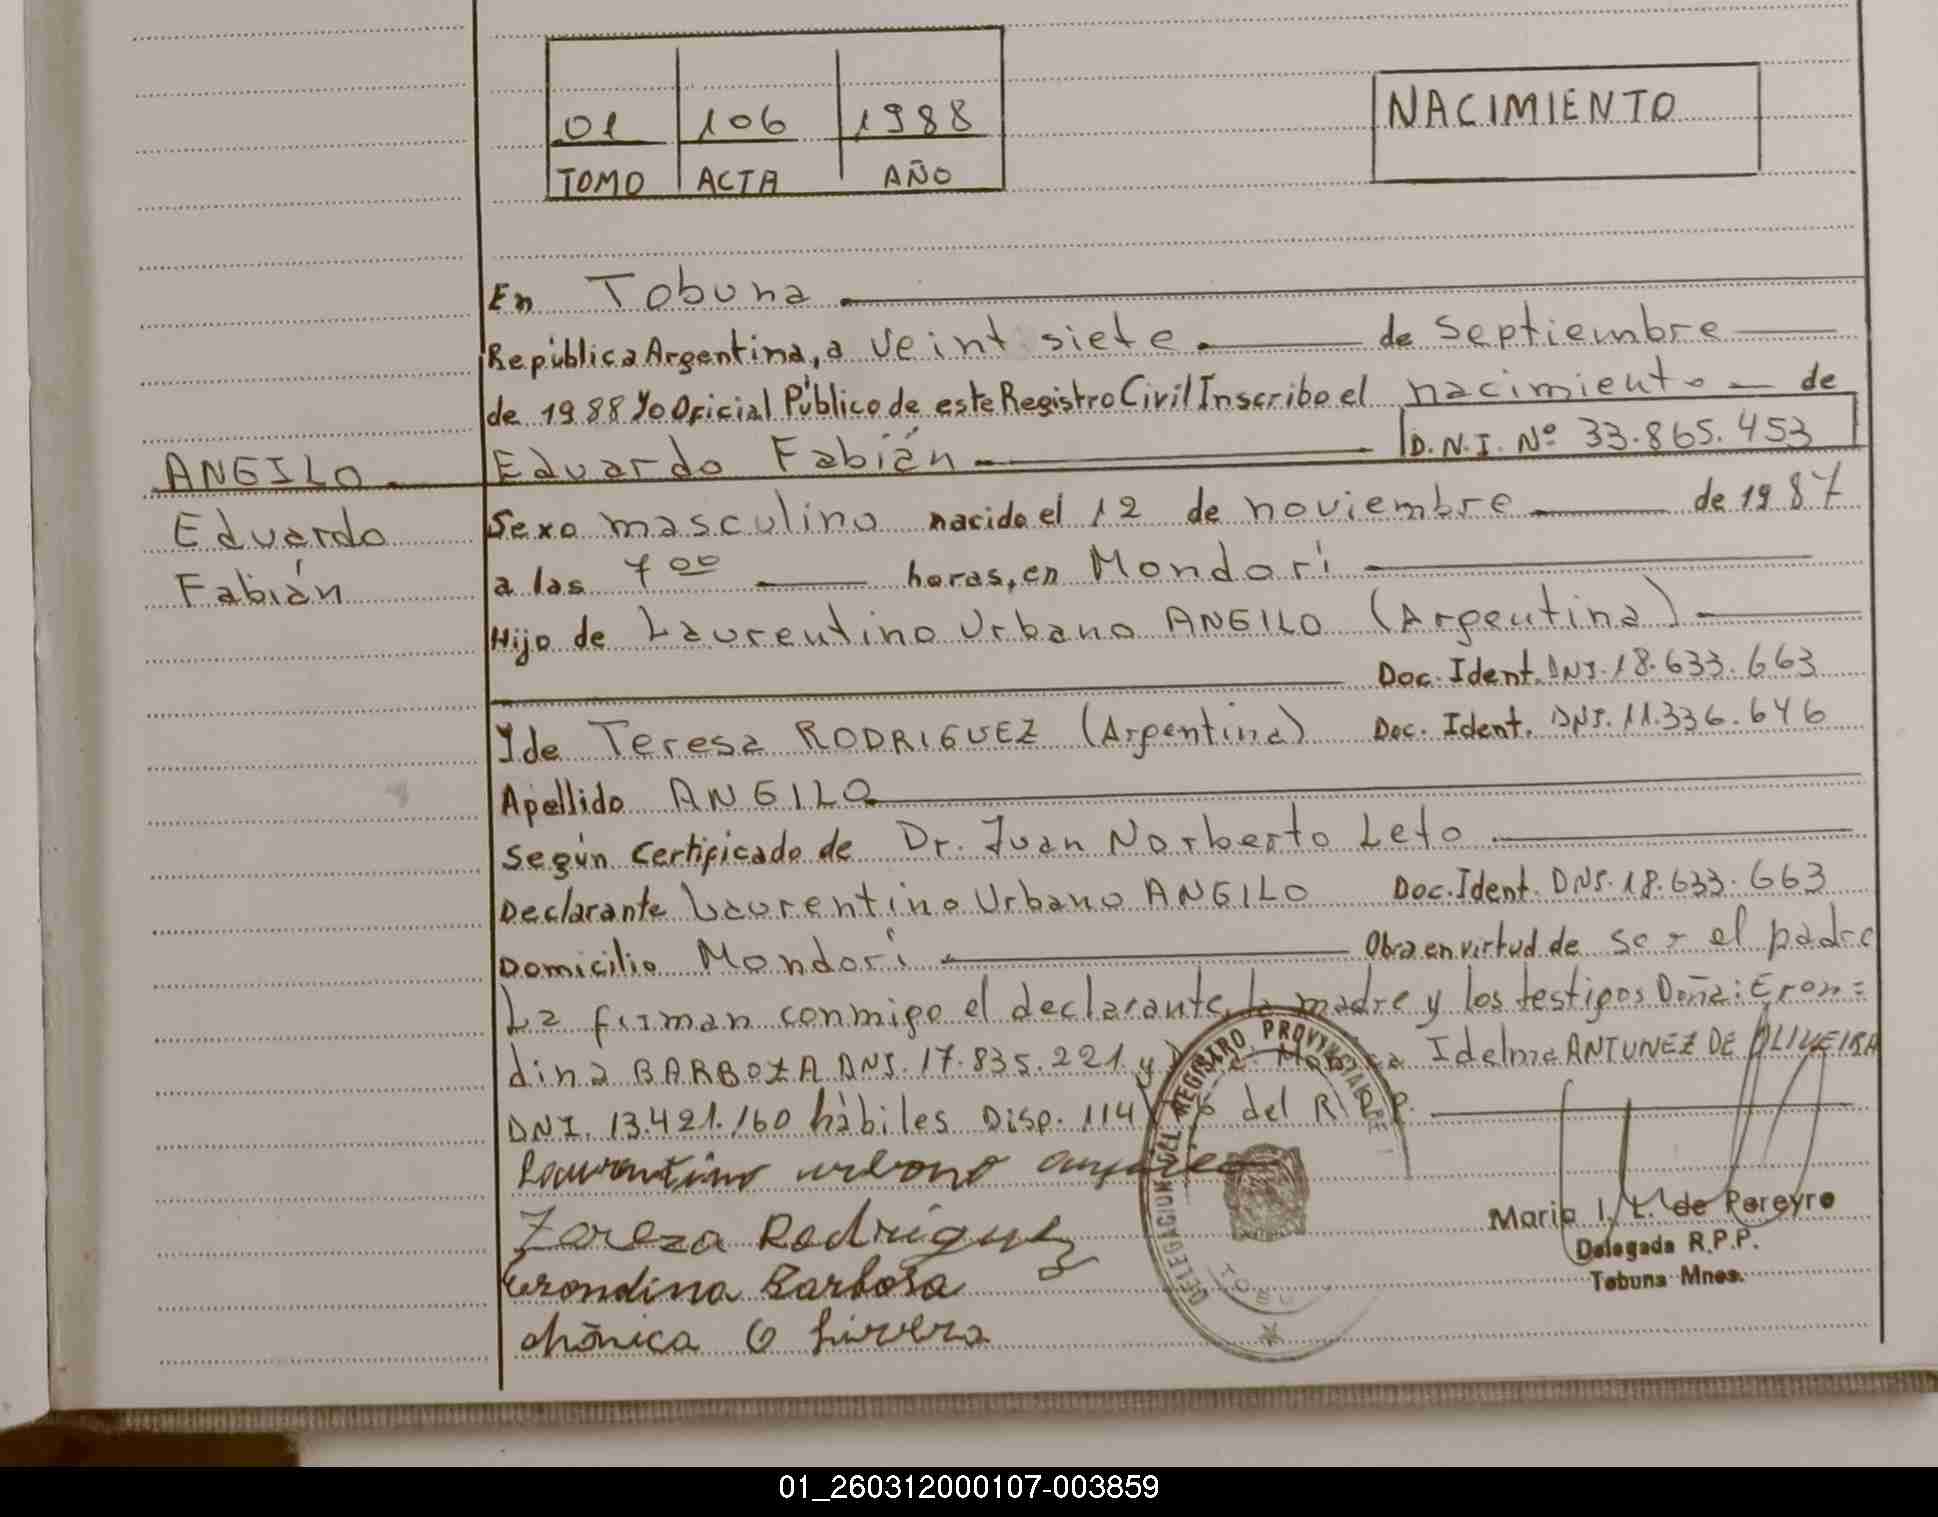 01 106 1988
TOMO ACTA AÑO
NACIMIENTO
En Tobuna
República Argentina, a veint siete de septiembre
de 1988 Yo Oficial Público de este Registro Civil Inscribo el nacimiento de
Eduardo Fabián D.N.I. Nº 33.865.453
ANGILO
Eduardo
Fabián
Sexo masculino nacido el 12 de noviembre de 1987
a las 7 00 horas, en Mondorí
Hijo de Laurentino Urbano ANGILO (Argentina)
Doc. Ident. DNI. 18.633.663
Y de Teresa RODRIGUEZ (Argentina) Doc. Ident. DNI. 11.336.646
Apellido ANGILO
Según Certificado de Dr. Juan Norberto Leto
Declarante Laurentino Urbano ANGILO Doc. Ident. DNI. 18.633.663
Domicilio Mondorí Obra en virtud de ser el padre
La firman conmigo el declarante, la madre y los testigos Doña: Eron=
dina BARBOZA DNI. 17.835.221 y Idelma ANTUNEZ DE OLIVEIRA
DNI. 13.421.160 hábiles Disp. 114 del R.P.P.
Laurentino urbano
Tereza Rodriguez
Erondina Barbosa
DELEGACION DEL REGISTRO PROVINCIAL DE
TOBU
Maria I. L. de Pereyro
Delegada R.P.P.
Tobuna Mnes.
01_260312000107-003859